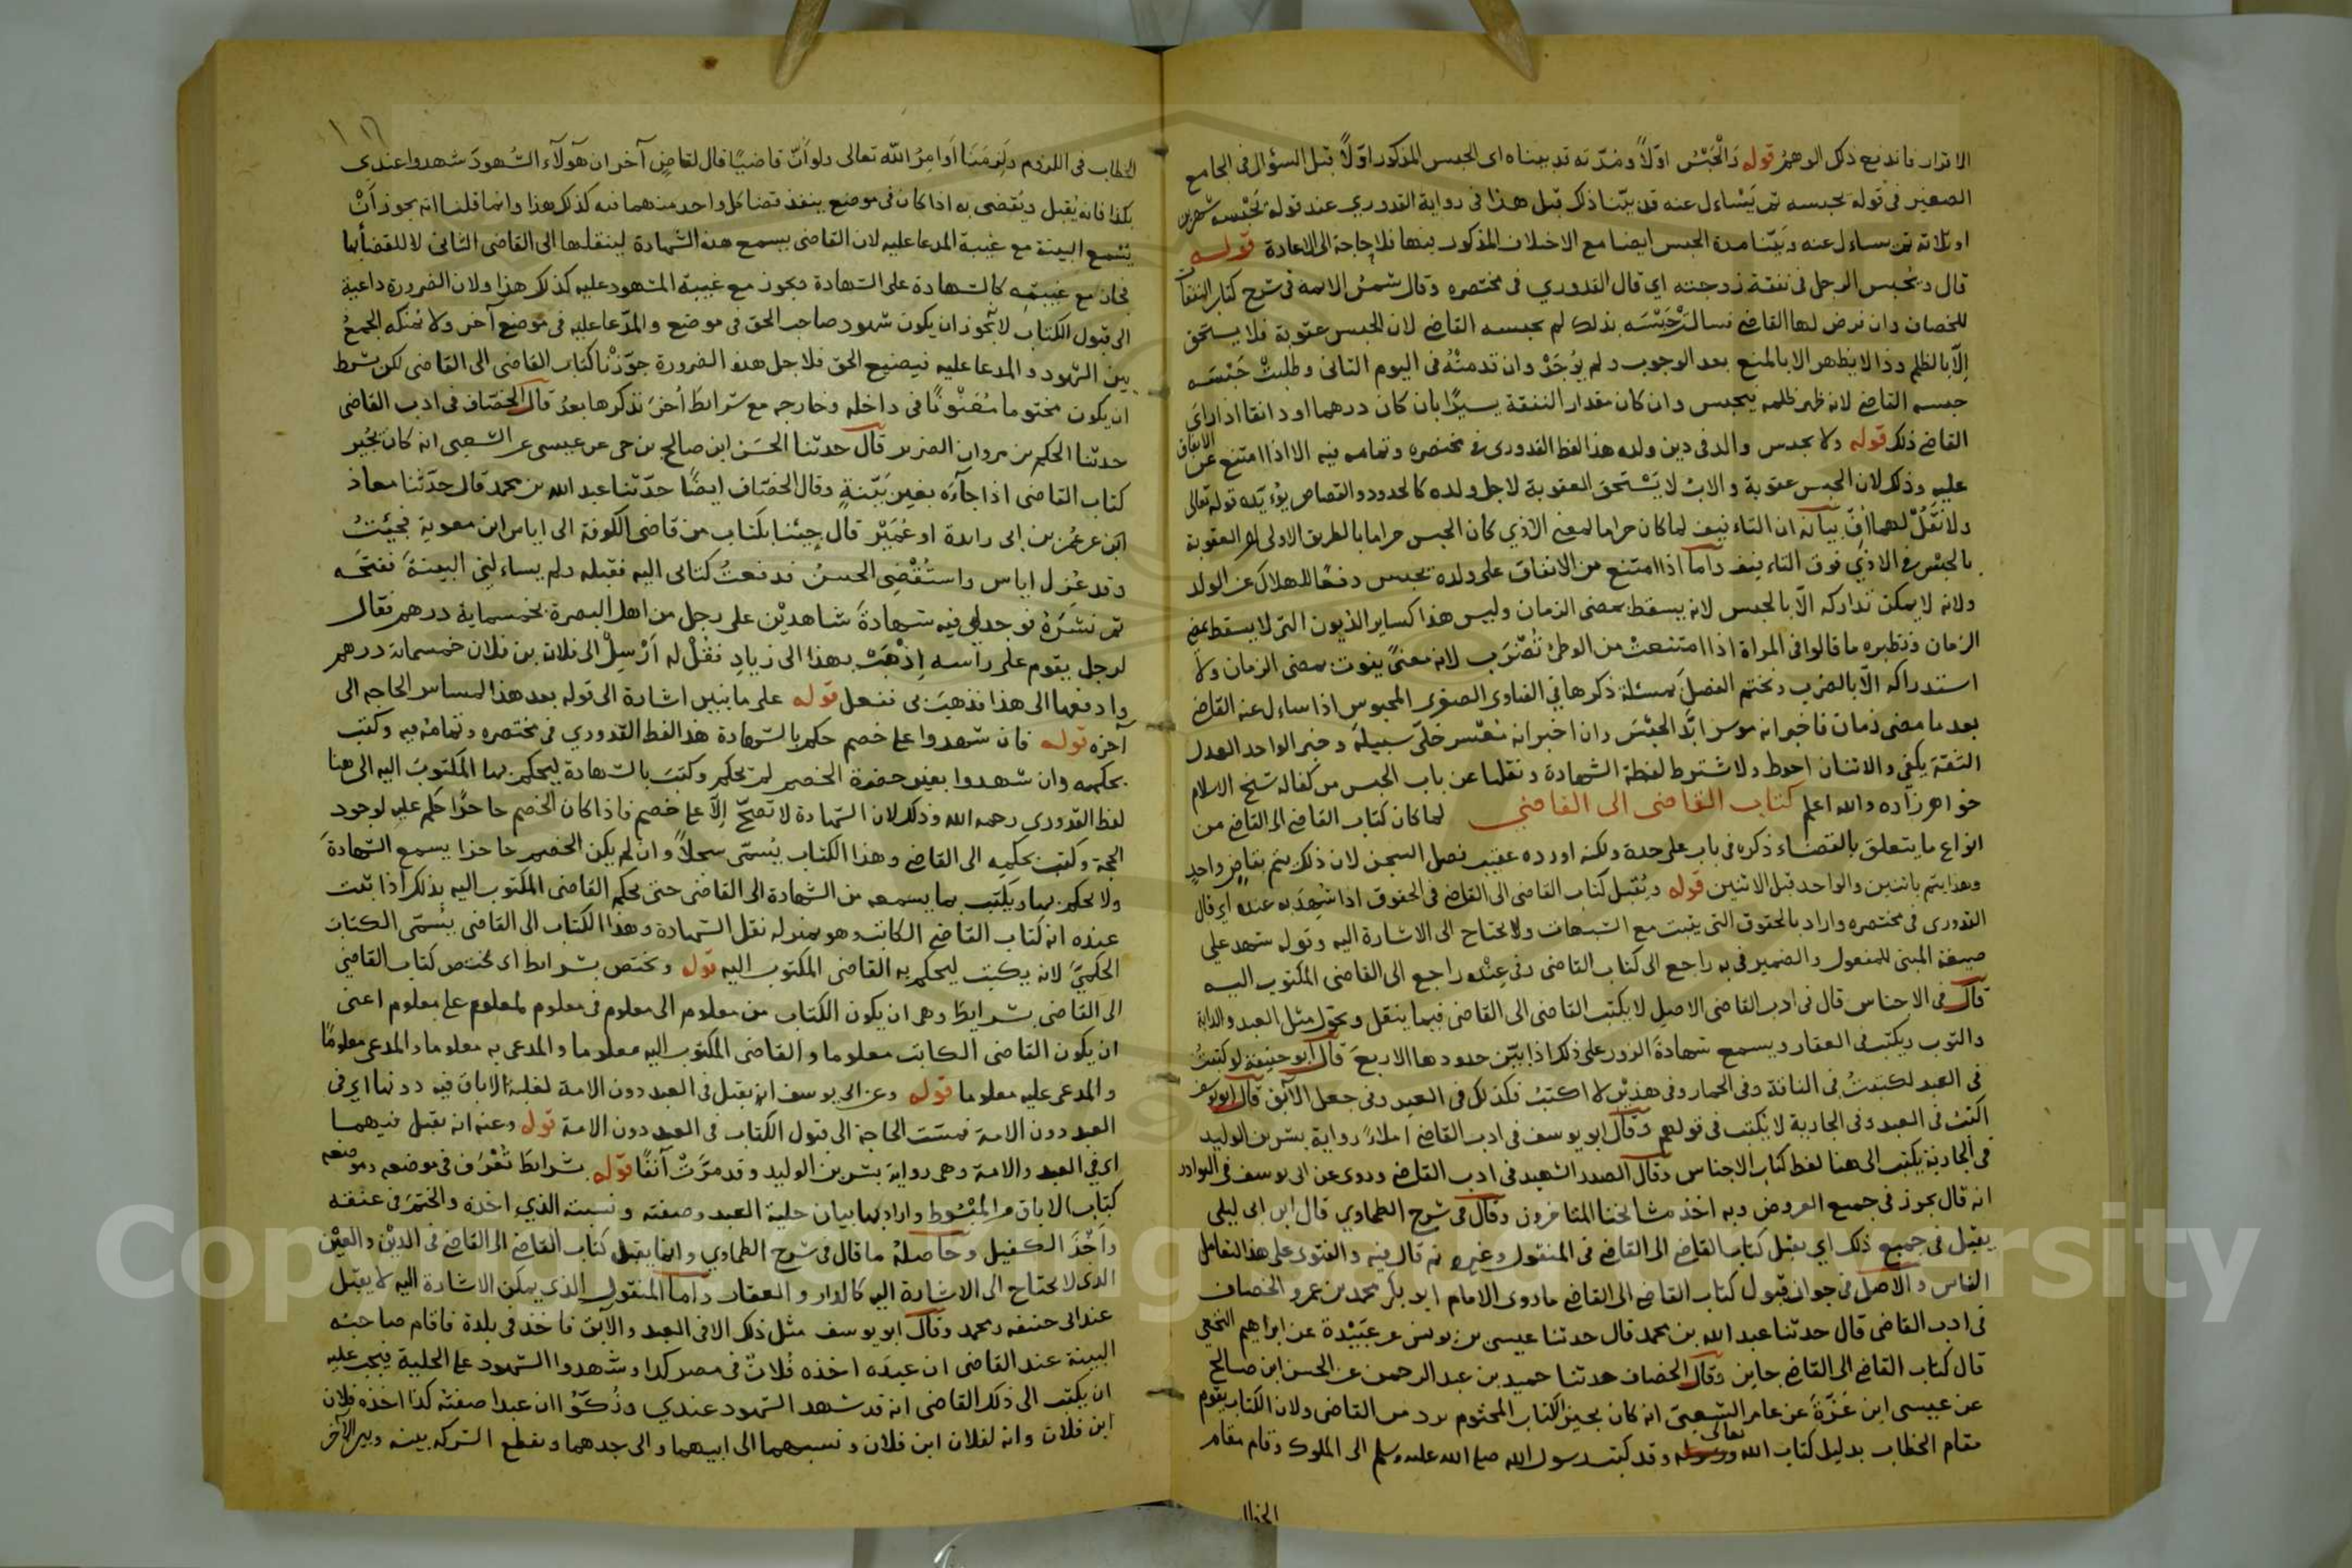 الاقرار فاندفع ذلك الوهم قوله والحبس اولاً ومدته قد بيناه اى الحبس المذكور اولاً قبل السؤال فى الجامع
الصغير فى قوله يحبسه ثم يسأل عنه قد بيّنا ذلك قبل هذا فى رواية القدوري عند قوله يحبسه شهرين
او ثلاثة ثم يساءل عنه وبيّنا مدة الحبس ايضا مع الاختلاف المذكور فيها فلا حاجة الى الاعادة قوله
قال ويحبس الرجل فى نفقة زوجته اي قال القدوري فى مختصره وقال شمس الائمة فى شرح كتاب النفقات
للخصاف وان فرض لها القاضي فسالته حبسه بذلك لم يحبسه القاضي لان الحبس عقوبة فلا يستحق
إلّا بالظلم وذا لا يظهر الا بالمنع بعد الوجوب ولم يُوجَدْ وان قدمتْه فى اليوم الثانى وطلبتْ حَبْسَه
حبسه القاضي لانه ظهر ظلمه يحبس وان كان مقدار النفقة يسيرًا بان كان درهما او دانقا اذا رأى
القاضي ذلك قوله ولا يحبس والد فى دين ولده هذا لفظ القدورى فى مختصره وتمامه فيه الا اذا امتنع عن الانفاق
عليه وذلك لان الحبس عقوبة والاب لا يَسْتحق العقوبة لاجل ولده كالحدود والقصاص يؤيّده قوله تعالى
ولا تَقُلْ لهما أفّ بيانه ان التاءفيف لما كان حراما لمعنى الاذي كان الحبس حراما بالطريق الاولى لان العقوبة
بالحبس فى الاذي فوق التاءفيف واما اذا امتنع من الانفاق على ولده يحبس دفعًا للهلاك عن الولد
ولانه لا يمكن تداركه الّا بالحبس لانه يسقط بمضى الزمان وليس هذا كساير الديون التى لا يسقط بمضى
الزمان ونظيره ما قالوا فى المراة اذا امتنعتْ من الوطئ تُضْرَب لانه معنىً يفوت بمضى الزمان ولا
استدراكه الّا بالضرب ونختم الفصلَ بمسئلة ذكرها فى الفتاوى الصغرى المحبوس اذا ساءل عنه القاضي
بعد ما مضى زمان فاخبر انه موسر ابّد الحَبْسَ وان اخبر انه مُعْسر خلّى سبيلَه وخبر الواحد العدل
الثقة يكفى والاثنان احوط ولا يشترط لفظة الشهادة ونقلها عن باب الحبس من كفالة شيخ الاسلام
خواهر زاده والله اعلم كتاب القاضى الى القاضي لما كان كتاب القاضي الى القاضي من
انواع ما يتعلق بالقضاء ذكره فى باب على حدة ولكنه اورده عقيب فصل السجن لان ذلك يتم بقاضٍ واحدٍ
وهذا يتم باثنين والواحد قبل الاثنين قوله ويُقبل كتاب القاضى الى القاضي فى الحقوق اذا شُهِدَ به عنده اي قال
القدورى فى مختصره واراد بالحقوق التى يثبت مع الشبهات ولا يحتاج الى الاشارة اليه وقوله شهد على
صيغة المبنى للمفعول والضمير فى به راجع الى كتاب القاضى وفى عِنْده راجع الى القاضى المكتوب اليه
قال فى الاجناس قال فى ادب القاضى الاصل لا يكتب القاضى الى القاضى فيما ينقل ويحوّل مثل العبد والدابة
والثوب ويكتب فى العقار ويسمع شهادةَ الزور على ذلك اذا بيّن حدودها الاربعَ قال ابو حنيفة لو كتبتُ
فى العبد لكتبتُ فى الناقة وفى الحمار وفى هذيْن لا اكتبُ فكذلك فى العبد وفى جعل الآبق قال ابو يوسف
اكتبُ فى العبد وفى الجارية لا يكتب فى قولهم وقال ابو يوسف فى ادب القاضي املاءً رواية بشر بن الوليد
فى الجارية يكتب الى هنا لفظ كتاب الاجناس وقال الصدر الشهيد فى ادب القاضي وروى عن ابى يوسف فى النوادر
انه قال يجوز فى جميع العروض وبه اخذ مشايخنا المتاخرون وقال فى شرح الطحاوي قال ابن ابى ليلى
يقبل فى جميع ذلك اي يقبل كتاب القاضي الى القاضي فى المنقول وغيره ثم قال فيه والفتوى على هذا لتعامل
الناس والاصل فى جواز قبول كتاب القاضي الى القاضي ما روى الامام ابو بكر محمد بن عمرو الخصاف
فى ادب القاضى قال حدثنا عبد الله بن محمد قال حدثنا عيسى بن يونس عن عبَيْدة عن ابراهيم النخعي
قال كتاب القاضي الى القاضي جايز وقال الخصاف حدثنا حميد بن عبد الرحمن عن الحسن ابن صالح
عن عيسى ابن عَزَّةَ عن عامر الشعبىّ انه كان يجيز الكتاب المختوم يرد من القاضى ولان الكتاب يقوم
مقام الخطاب بدليل كتاب الله تعالى وقد كتب رسول الله صلى الله عليه وسلم الى الملوك وقام مقام
الخطاب
١١٦
الخطاب فى اللزوم ولزمتنا اوامرُ الله تعالى ولو أنّ قاضيًا قال لقاضٍ آخر ان هؤلآء الشهودَ شهدوا عندي
بكذا فانه يُقبل ويُقضى به اذا كان فى موضع ينفذ قضا كل واحد منهما فيه كذلك هذا وانما قلنا انه يجوز أنْ
يَسْمع البينة مع غيبة المدعا عليه لان القاضى يسمع هذه الشهادة لينقلها الى القاضى الثانى لا للقضاء بها
فجاز مع غيبته كالشهادة على الشهادة يجوز مع غيبة المشهود عليه كذلك هذا ولان الضرورة داعية
الى قبول الكتاب لانه يجوز ان يكون شهود صاحب الحق فى موضع والمدّعا عليه فى موضع آخر ولا يُمكنه الجمعُ
بين الشهود والمدعا عليه فيضيع الحق فلاجل هذه الضرورة جوّزْنا كتاب القاضى الى القاضى لكن بشرط
ان يكون مختوما مُعَنْونًا فى داخله وخارجه مع شرائطَ أخرَ نذكرها بعدُ قال الخصّاف فى ادب القاضى
حدثنا الحكم بن مروان الضرير قال حدثنا الحسَن ابن صالح بن حى عن عيسى عن الشعبى انه كان يُجيز
كتاب القاضى اذا جآءَه بغير بَيّنةٍ وقال الخصّاف ايضًا حدّثنا عبد الله بن محمد قال حدّثنا معاذ
ابن عن عُمَر بن ابى زايدة او عُمَيْر قال جِئنا بكتاب من قاضى الكوفة الى اياس ابن معوية فجيئتُ
وقد عُزل اياس واستُقْضِى الحسنُ فدفعتُ كتابى اليه فقبله ولم يساءلنى البينةَ ففتحَه
ثم نشرَهُ فوجد لى فيه شهادةَ شاهديْن على رجل من اهل البصرة بخمسماية درهم فقال
لرجل يقوم على راسه إذْهَبْ بهذا الى زيادٍ فقُلْ له أَرْسِلْ الى فلان بن فلان خمسمائة درهم
وادفعها الى هذا فذهبَ بى ففعل قوله على ما نبين اشارة الى قوله بعد هذا لمساس الحاجة الى
آخره قوله فان شهدوا على خصم حكم بالشهادة هذا لفظ القدوري فى مختصره وتمامُه فيه وكتب
بحكمه وان شهدوا بغير حضرة الخصم لم يحكم وكتبَ بالشهادة ليحكم بها المكتوبُ اليه الى هنا
لفظ القدوري رحمه الله وذلك لان الشهادة لا تصحّ إلّا على خصم فاذا كان الخصم حاضرًا حكم عليه لوجود
الحجة وكتب بحكمِه الى القاضي وهذا الكتاب يُسمّى سجلاً وان لم يكن الخصم حاضرا يسمع الشهادةَ
ولا يحكم بها ويكتب بما يسمعه من الشهادة الى القاضى حتى يحكم القاضى المكتوب اليه بذلك اذا ثبت
عنده انه كتاب القاضي الكاتب وهو بمنزلة نقل الشهادة وهذا الكتاب الى القاضى يُسمّى الكتابَ
الحكميّ لانه يكتب ليحكم به القاضى المكتوب اليه قوله ويختص بشرائط اى يختص كتاب القاضي
الى القاضى بشرايطَ وهى ان يكون الكتاب من معلوم الى معلوم فى معلوم لمعلوم على معلوم اعنى
ان يكون القاضى الكاتب معلوما والقاضى المكتوب اليه معلوما والمدعى به معلوما والمدعى معلومًا
والمدعى عليه معلوما قوله وعن ابى يوسف انه يقبل فى العبد دون الامة لغلبة الاباق فيه دونها اي فى
العبد دون الامة فمسّت الحاجة الى قبول الكتاب فى العبد دون الامة قوله وعنه انه يقبل فيهما
اي فى العبد والامة وهى رواية بشر بن الوليد وقد مرّتْ آنفًا قوله بشرائطَ تُعْرَف فى موضعه وموضعه
كتاب الاباق من المبْسُوط واراد بها بيان حلية العبد وصفته ونسبته الذي اخذه والختمَ فى عنقه
واَخْذَ الكفيل وحاصلهُ ما قال فى شرح الطحاوي وانما يقبل كتاب القاضي الى القاضي فى الدَيْن والعَيْن
الذى لا يحتاج الى الاشارة اليه كالدار والعقار واما المنقول الذي يمكن الاشارة اليه لا يقبل
عند ابى حنيفه ومحمد وقال ابو يوسف مثل ذلك الا فى العبد والآبق فاخذ فى بلدة فاقام صاحبه
البينة عند القاضى ان عبدَه اخذه فُلانٌ فى مصر كذا وشَهدوا الشهود على الحلية فيجب عليه
ان يكتب الى ذلك القاضى انه قد شهد الشهود عندي وزُكّوُا ان عبدا صفته كذا اخذه فلان
ابن فلان وانه لفلان ابن فلان ونسبهما الى ابيهما والى جدهما ويقطع الشركة بينه وبين الآخر
Copyright © King Saud University